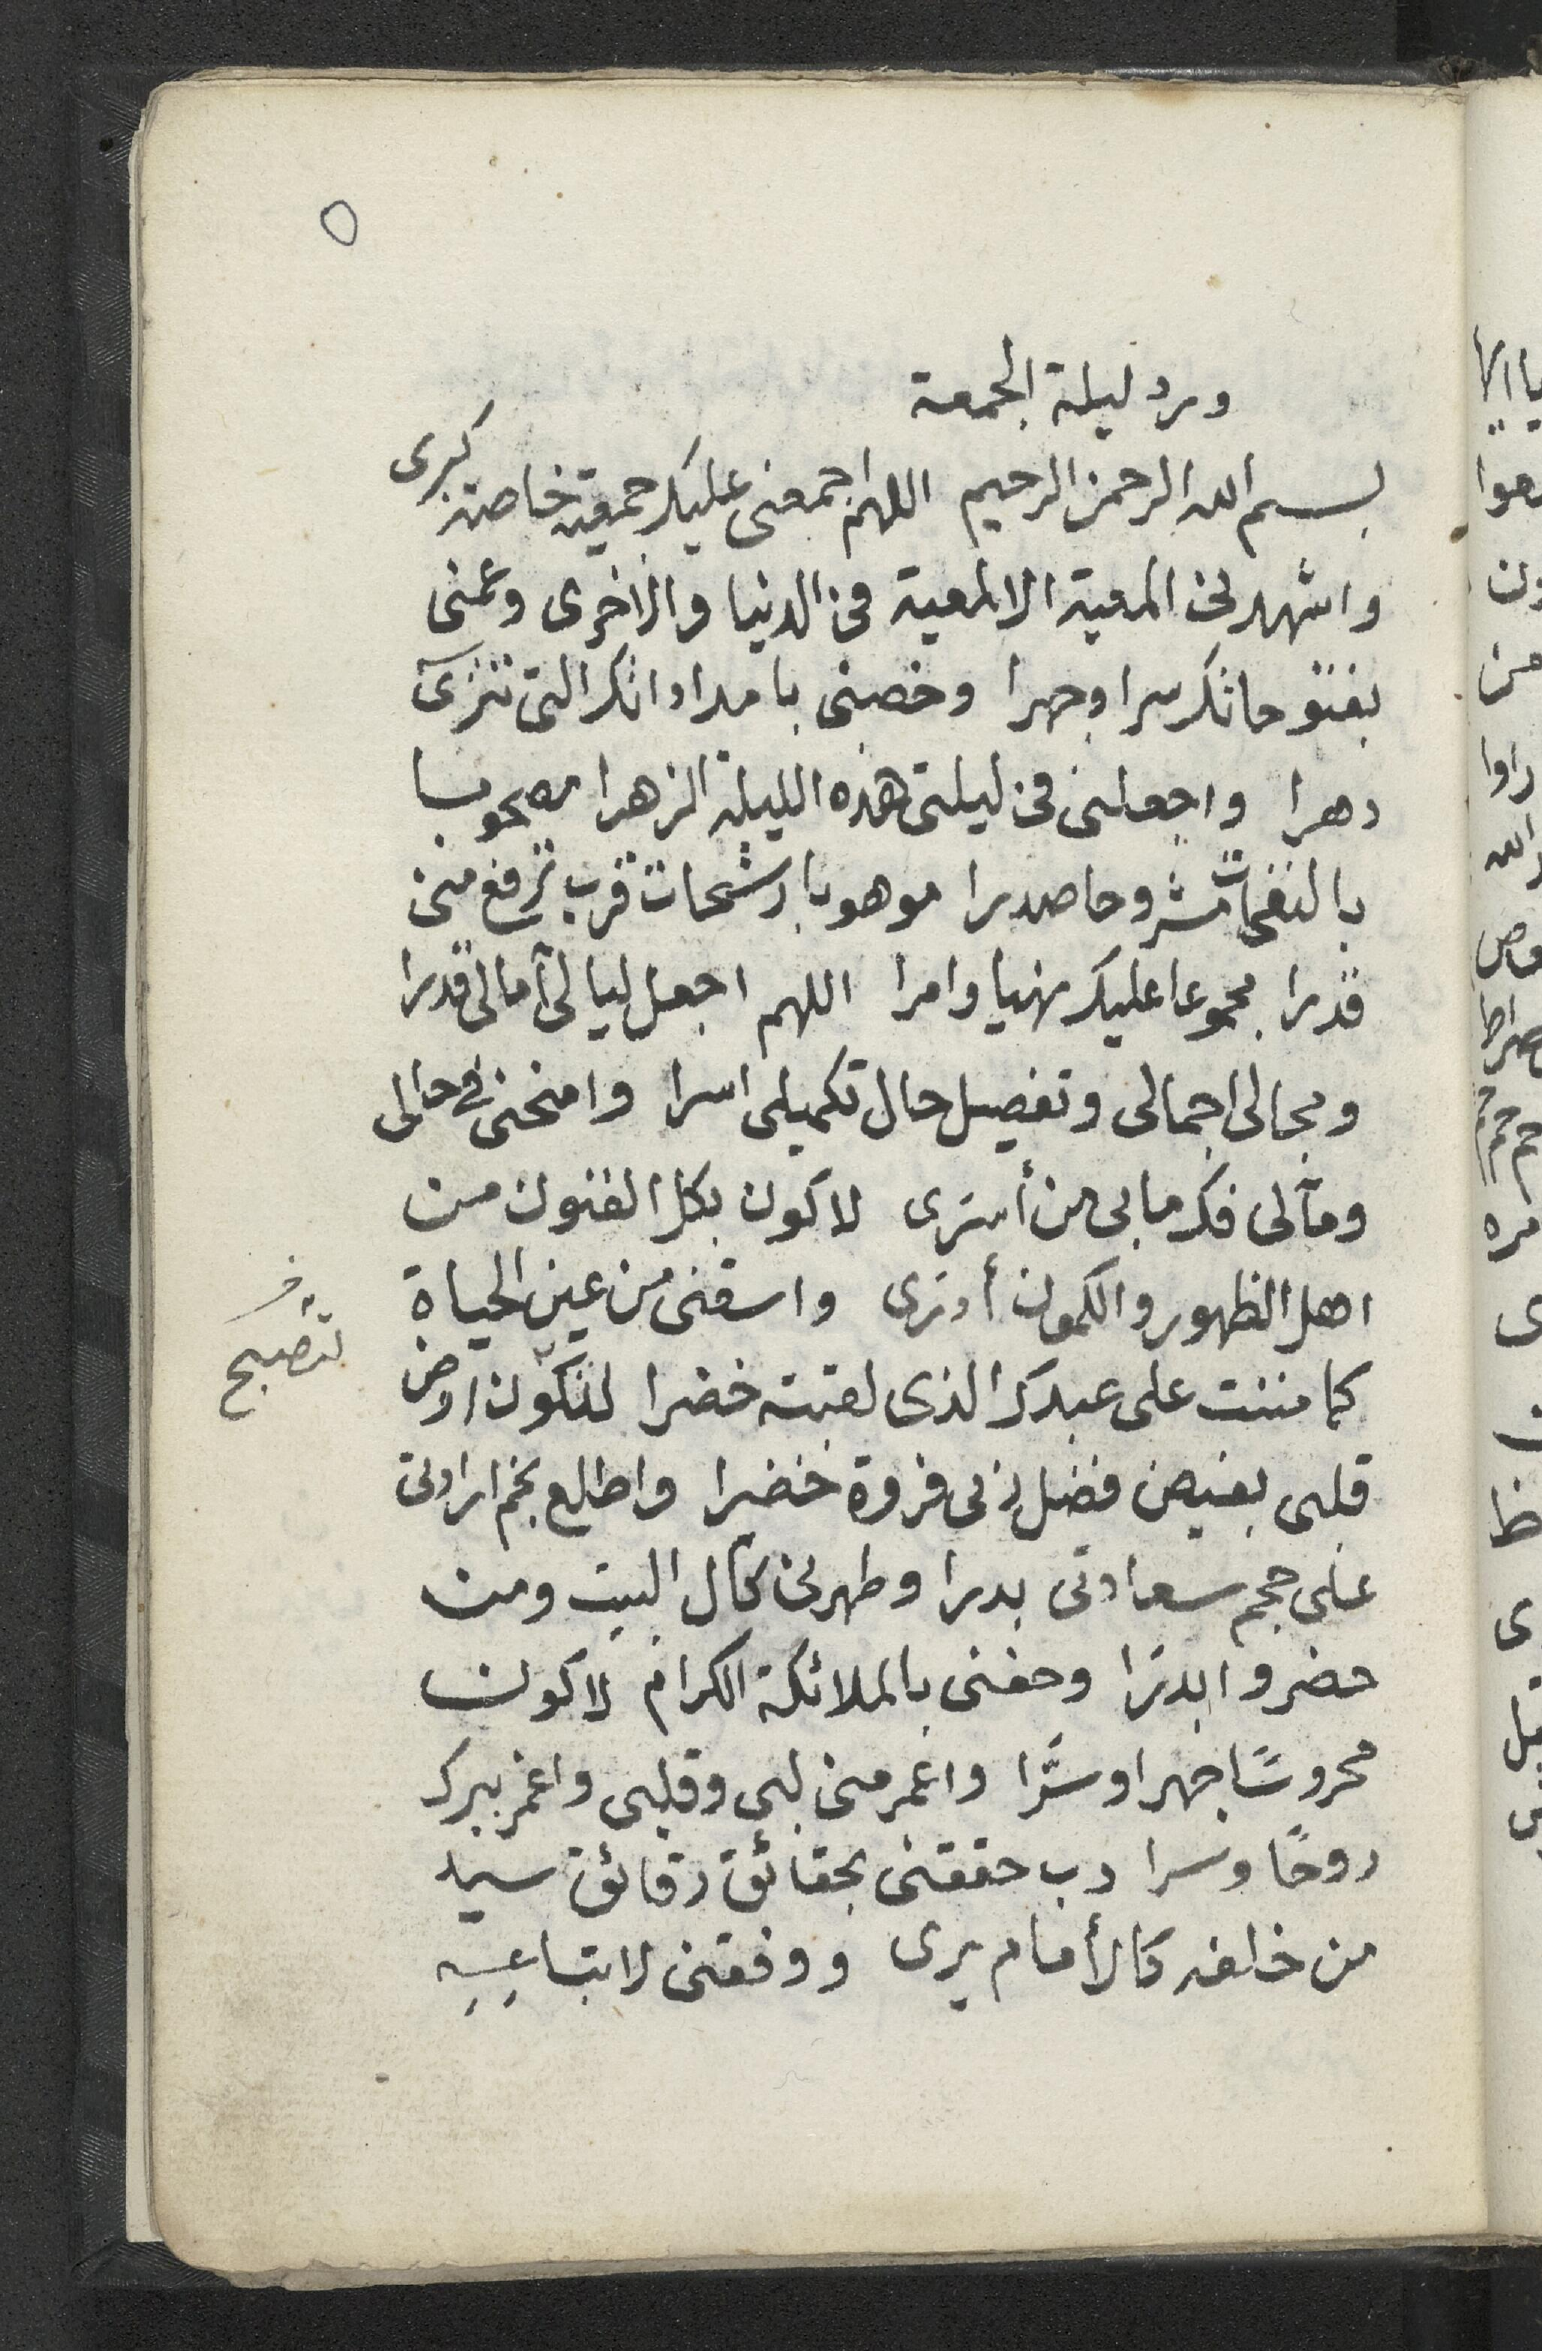 ٥
ورد ليلة الجمعة
بسم الله الرحمن الرحيم اللهم اجمعنى عليك جمعية خاصة كبرى
واشهدنى المعية الالمعية فى الدنيا والاخرى وعمنى
بفتوحاتك سرا وجهرا وخصنى بامداداتك التى تترى
دهرا واجعلنى فى ليلتى هذه الليلة الزهرا مصحوبا
بالنفحات مشروحا صدرا موهوبا رشحات قرب ترفع منى
قدرا مجموعا عليك نهيا وامرا اللهم اجعل ليالى آمالى قدرا
ومجالى اجمالى وتفصيل حال تكميلى اسرا وامنحنى فى حالى
ومآلى فك مابى من أسرى لاكون بكل الفنون من
اهل الظهور والكمون أدرى واسقنى من عين الحياة
كما مننت على عبدك الذى لقبته خضرا لتكون ارض
لتصبح خ
قلبى بفيض فضل ذى فروة خضيرا واطلع نجم ارادتى
على حجم سعادتى بدرا وطهرنى كآل البيت ومن
حضروا بدرا وحفنى بالملائكة الكرام لاكون
محروسًا جهرا وسّرا واعمر منى لبى وقلبى واغمر ببرك
روحًا وسرا رب حققنى بحقائق رقائق سيد
من خلفه كالأمام يرى ووفقنى لاتباعه